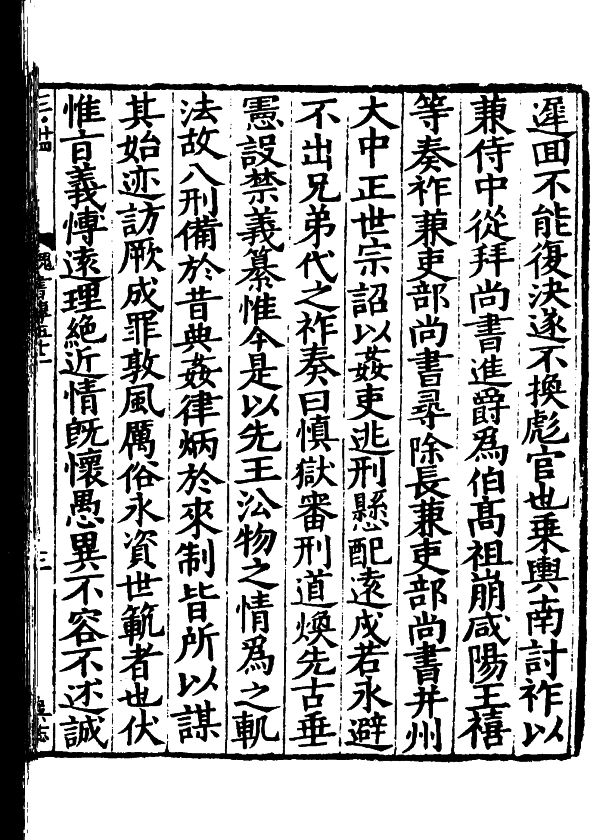 遲回不能復決遂不換彪官也乗輿南討祚以
兼侍中從拜尚書進爵為伯髙祖崩咸陽王禧
等奏祚兼吏部尚書尋除長兼吏部尚書并州
大中正世宗詔以姦吏逃刑懸配逺戍若永避
不出兄弟代之祚奏曰慎獄審刑道煥先古垂
憲設禁義纂惟今是以先王㳂物之情為之軌
法故八刑備於昔典姦律炳於來制皆所以謀
其始迹訪厥成罪敦風厲俗永資世範者也伏
惟旨義博逺理絶近情旣懷愚異不容不述誠
魏書傳五十二
三